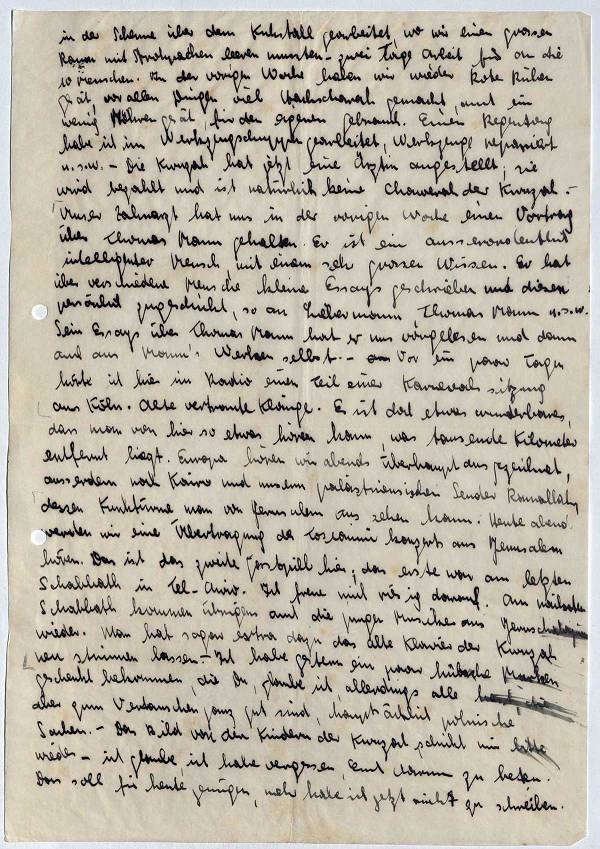 in der Scheune über dem Kuhstall gearbeitet, wo wir einen grossen
Raum mit Strohsachen leeren mussten – zwei Tage Arbeit für an die
10 Menschen. In der vorigen Woche haben wir wieder Rote Rüben
gesät, vor allen Dingen viel gemacht, auch ein
wenig Möhren gesät, für den eigenen Gebrauch. Einen Regentag
habe ich im Werkzeugschuppen gearbeitet, Werkzeuge repariert
u.s.w. – Die Kwuzah hat jetzt eine Ärztin angestellt; sie
wird bezahlt und ist natürlich keine Chawerah der Kwuzah. –
Unser Zahnarzt hat uns in der vorigen Woche einen Vortrag
über Thomas Mann gehalten. Er ist ein ausserordentlich
intelligenter Mensch mit einem sehr grossen Wissen. Er hat
über verschiedene Menschen kleine Essays geschrieben und diesen
persönlich zugeschickt, so an Liebermann, Thomas Mann u.s.w.
Sein Essays über Thomas Mann hat er uns vorgelesen und dann
auch aus Mann's Werken selbst. – Vor ein paar Tagen
hörte ich hier im Radio einen Teil einer Karnevalssitzung
aus Köln. Alte vertraute Klänge. Es ist doch etwas wunderbares,
dass man von hier so etwas hören kann, was tausende Kilometer
entfernt liegt. Europa hören wir abends überhaupt ausgezeichnet,
ausserdem noch Kairo und unseren palästinensischen Sender Ramallah,
dessen Funktürme man von Jerusalem aus sehen kann. Heute abend
werden wir eine Übertragung des Toscanini Konzerts aus Jerusalem
hören. Das ist das zweite Gastspiel hier; das erste war am letzten
Schabbath in Tel-Aviv. Ich freue mich riesig darauf. Am nächsten
Schabbath kommen übrigens auch die jungen Musiker aus Jerusalem
wieder. Man hat sogar extra dazu das alte Klavier der Kwuzah
neu stimmen lassen. – Ich habe gestern ein paar hübsche Marken
geschenkt bekommen, die Du, glaube ich, allerdings alle
aber zum Vertauschen ganz gut sind, hauptsächlich polnische
Sachen. – Das Bild von den Kindern der Kwuzah schickt mir bitte
wieder – ich glaube, ich habe vergessen, Euch darum zu bitten.
Das soll für heute genügen, mehr habe ich jetzt nicht zu schreiben.